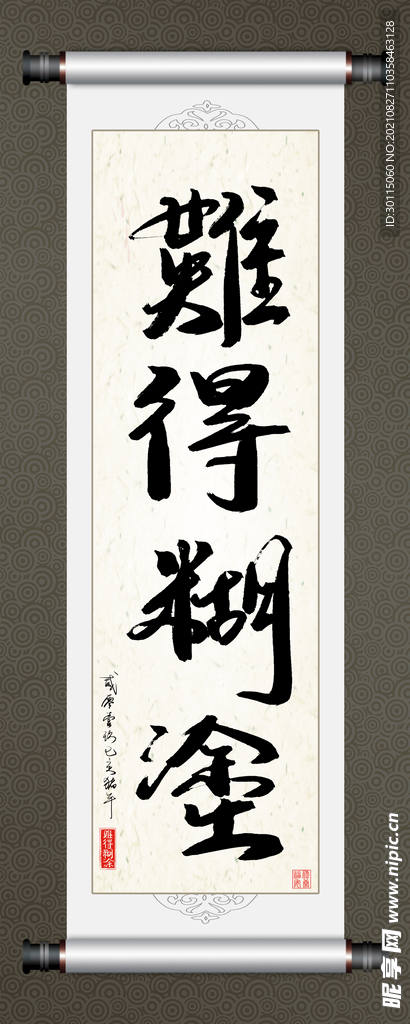 難得糊塗
己亥豬年
難得糊涂
ID:30115060 NO:20210827110358463128
昵享网 www.nipic.cn